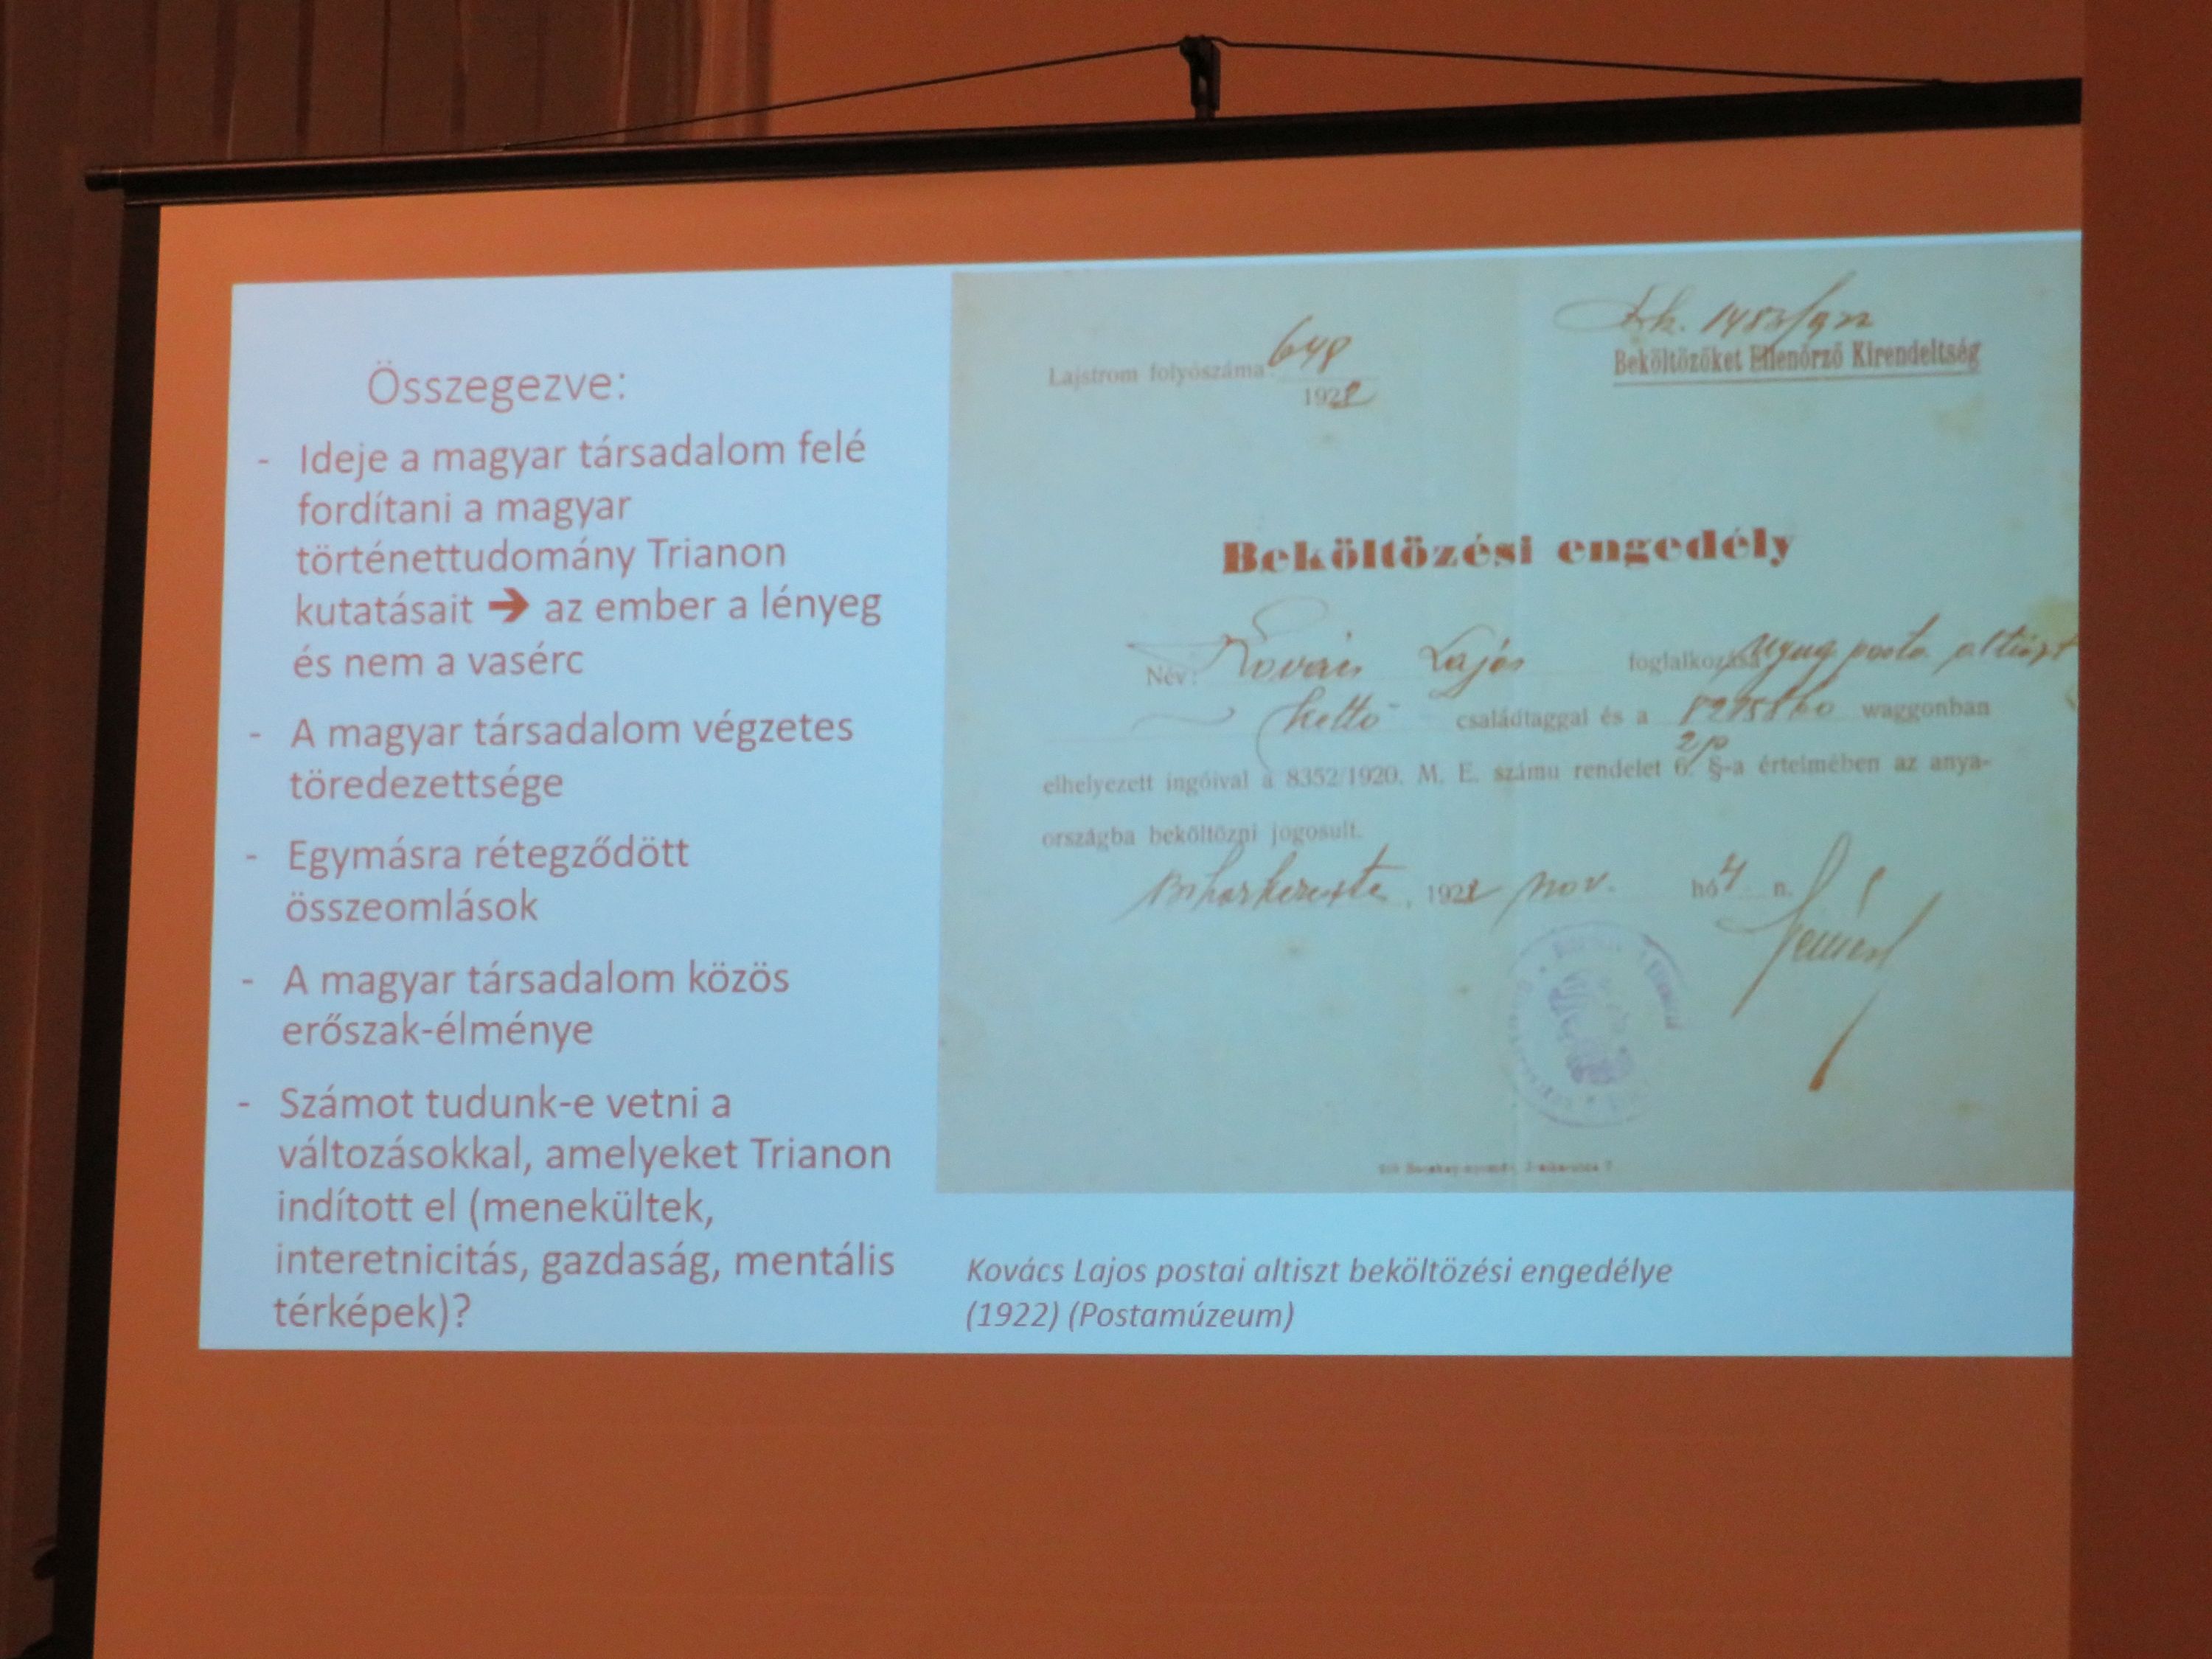 Összegezve:
- Ideje a magyar társadalom felé
fordítani a magyar
történettudomány Trianon
kutatásait ➔ az ember a lényeg
és nem a vasérc
- A magyar társadalom végzetes
töredezettsége
- Egymásra rétegződött
összeomlások
- A magyar társadalom közös
erőszak-élménye
- Számot tudunk-e vetni a
változásokkal, amelyeket Trianon
indított el (menekültek,
interetnicitás, gazdaság, mentális
térképek)?
Lajstrom folyószáma: 648
1922
Beköltözőket Ellenőrző Kirendeltség
Beköltözési engedély
Név: Kovács Lajos foglalkozása Nyug posta altiszt
kettő családtaggal és a waggonban
elhelyezett ingóival a 8352/1920. M. E. számu rendelet 6. §-a értelmében az anya-
országba beköltözni jogosult.
Biharkeresztes, 1922 nov. hó 4 n.
Kovács Lajos postai altiszt beköltözési engedélye
(1922) (Postamúzeum)